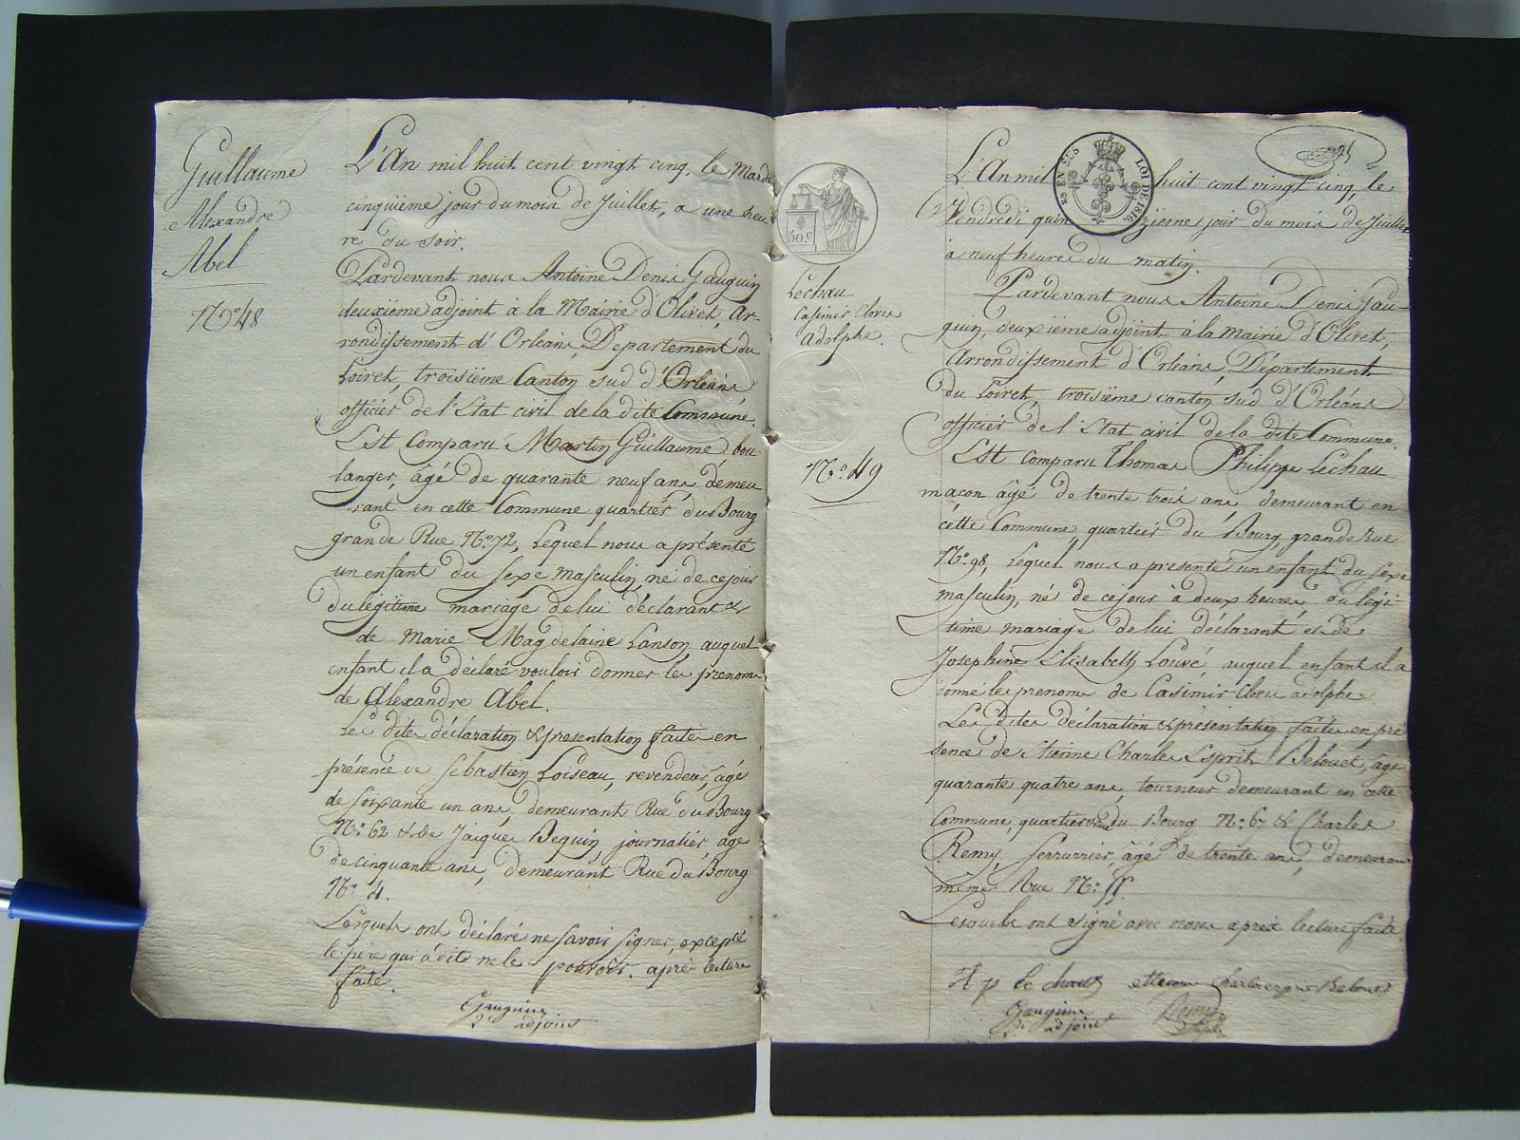 Guillaume
Alexandre
Abel
N.° 48
L'An mil huit cent vingt cinq, le Mardi
cinquième jour du mois de Juillet, a une heu
re du soir.
Pardevant nous Antoine Denis Gauguin
deuxième adjoint à la Mairie d'Olivet, Ar-
rondissement d'Orleans, Departement du
Loiret, troisième Canton sud d'Orléans
officier de l'Etat civil de la dite Commune.
Est Comparu Martin Guillaume bou
langer, âgé de quarante neuf ans demeu
rant en cette Commune quartier du Bourg
grande Rue N.° 72, Lequel nous a présenté
un enfant du sexe masculin, né de ce jour
du légitime mariage de lui déclarant &
de Marie Magdelaine Lanson auquel
enfant il a déclaré vouloir donner les prenoms
de Alexandre Abel.
Les dites déclaration & presentation faite en
présence de Sebastien Loiseau, revendeur, âgé
de soixante un ans, demeurant Rue du Bourg
N.° 62 & de Jacque Bequin journalier, age
de cinquante ans, demeurant Rue du Bourg
N.° 4.
Lesquels ont déclaré ne savoir signer, excepté
le pere qui a dit ne le pouvoir. après lecture
faite.
Gauguin
2.e adjoint
Lechau
Casimir Cloris
adolphe.
N.° 49
L'An mil huit cent vingt cinq, le
Vendredi quinzième jour du mois de Juillet
à neuf heures du matin.
Pardevant nous Antoine Denis Gau-
guin, deuxième adjoint, à la mairie d'Olivet,
Arrondissement d'Orleans, Département
du Loiret, troisième canton sud d'Orléans
officier de l'Etat civil de la dite Commune.
Est comparu Thomas Philippe Lechau
maçon âgé de trente trois ans, demeurant en
cette Commune, quartier du Bourg grande rue
N.° 98, Lequel nous a présenté un enfant du sexe
masculin, né de ce jour à deux heures, du légi
time mariage de lui déclarant et de
Josephine Elisabeth Louré auquel enfant il a
donné les prenoms de Casimir adolphe
Les dites déclaration & présentation faite en pré
sence de Etienne Charles Esprit Belouet, age
quarante quatre ans, tourneur demeurant en cette
Commune, quartier du Bourg N.° 6 & Charles
Remy, serrurier, âgé de trente ans, demeurant
même Rue N.° 55.
Lesquels ont signé avec nous après lecture faite
t p le chau etienne charles esprit Belouet
Gauguin
2.e adjoint
Remy